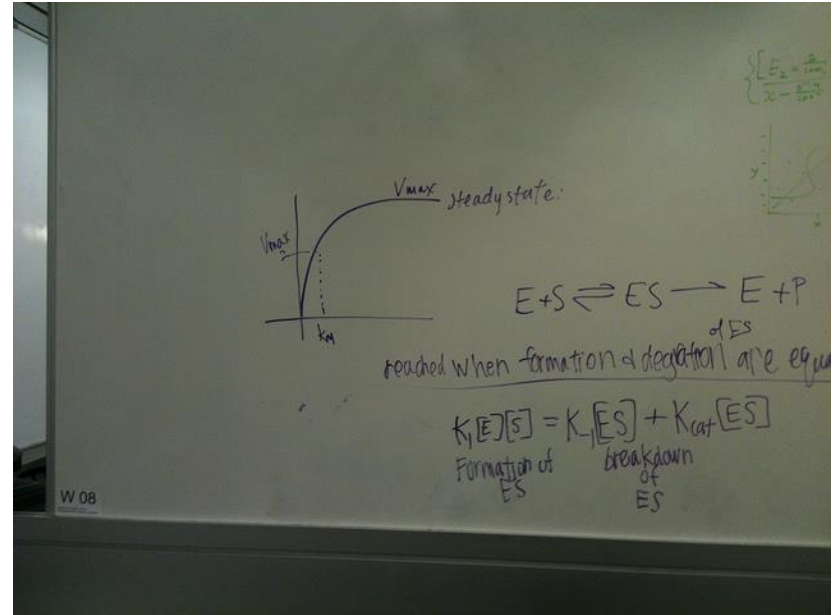 Vmax steady state:
Vmax
2
KM
E+S ⇌ ES → E+P
of ES
reached when formation & degration are equa
K₁[E][S] = K₋₁[ES] + Kcat[ES]
Formation of ES
breakdown of ES
W 08
y
x